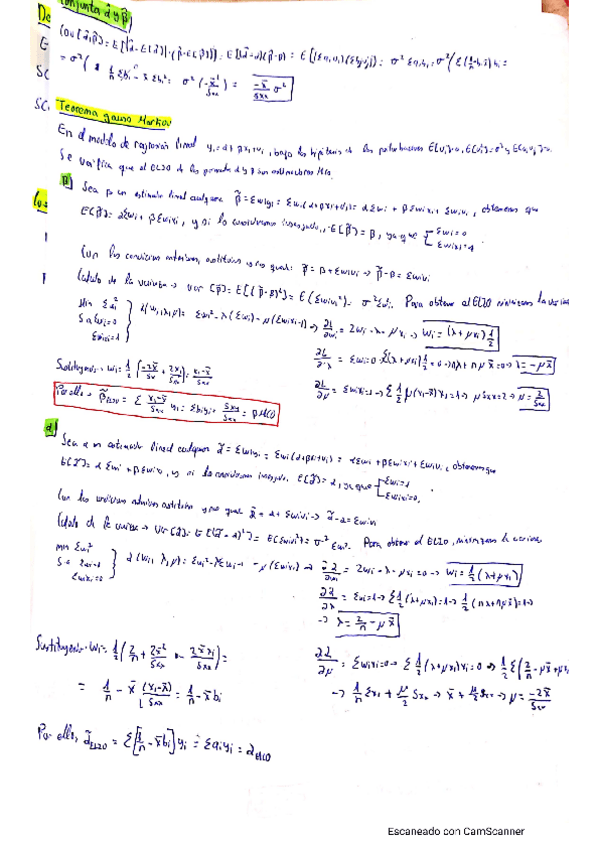 Conjunta α̂ y β̂
Cov(α̂,β̂) = E[(α̂ - E(α̂))·(β̂ - E(β̂))] = E[(α̂-α)(β̂-β)] = E[(Σaᵢuᵢ)(Σbᵢuᵢ)] = σ² Σaᵢbᵢ = σ² (Σ(1/n - bᵢx̄)bᵢ =
= σ² (1/n Σbᵢ - x̄ Σbᵢ² = σ² (-x̄/Sxx) = -x̄/Sxx σ²
Teorema gauss Markov
En el modelo de regresión lineal yᵢ=α+βxᵢ+uᵢ, bajo las hipótesis de las perturbaciones E(uᵢ)=0, E(uᵢ²)=σ² y E(uᵢuⱼ)=0.
Se verifica que el ELIO de los parametros α y β son estimadores MCO.
β) Sea β un estimador lineal cualquiera β̃ = Σwᵢyᵢ = Σwᵢ(α+βxᵢ+uᵢ) = αΣwᵢ + βΣwᵢxᵢ + Σwᵢuᵢ, obtenemos que
E(β̃) = αΣwᵢ + βΣwᵢxᵢ, y si lo consideramos insesgado, E(β̃) = β, ya que { Σwᵢ=0
Σwᵢxᵢ=1
Con las condiciones anteriores, nos queda: β̃ = β + Σwᵢuᵢ → β̃ - β = Σwᵢuᵢ
Calculo de la varianza → Var(β̃) = E[(β̃-β)²] = E(Σwᵢuᵢ)² = σ² Σwᵢ². Para obtener el ELIO minimizamos la varianza
Min Σwᵢ²
s.a Σwᵢ=0
Σwᵢxᵢ=1
L(wᵢ,λ,μ) = Σwᵢ² - λ(Σwᵢ) - μ(Σwᵢxᵢ-1) → ∂L/∂wᵢ = 2wᵢ - λ - μxᵢ → wᵢ = (λ+μxᵢ) 1/2
∂L/∂λ = Σwᵢ=0 → Σ(λ+μxᵢ) 1/2 = 0 → nλ + nμx̄ = 0 → λ = -μx̄
Sustituyendo → wᵢ = 1/2 (-2x̄/Sxx + 2xᵢ/Sxx) = xᵢ-x̄/Sxx
∂L/∂μ = Σwᵢxᵢ=1 → Σ 1/2 μ(xᵢ-x̄)xᵢ=1 → μSxx=2 → μ = 2/Sxx
Por ello, β̃ELIO = Σ xᵢ-x̄/Sxx yᵢ = Σbᵢyᵢ = Sxy/Sxx = βMCO
α) Sea α un estimador lineal cualquiera α̃ = Σwᵢyᵢ = Σwᵢ(α+βxᵢ+uᵢ) = αΣwᵢ + βΣwᵢxᵢ + Σwᵢuᵢ, obtenemos que
E(α̃) = αΣwᵢ + βΣwᵢxᵢ, y si lo consideramos insesgado, E(α̃) = α, ya que { Σwᵢ=1
Σwᵢxᵢ=0
Con las condiciones anteriores nos queda α̃ = α + Σwᵢuᵢ → α̃ - α = Σwᵢuᵢ
Calculo de la varianza → Var(α̃) = E[(α̃-α)²] = E(Σwᵢuᵢ)² = σ² Σwᵢ². Para obtener el ELIO, minimizamos la varianza
min Σwᵢ²
s.a Σwᵢ=1
Σwᵢxᵢ=0
L(wᵢ,λ,μ) = Σwᵢ² - λ(Σwᵢ-1) - μ(Σwᵢxᵢ) → ∂L/∂wᵢ = 2wᵢ - λ - μxᵢ = 0 → wᵢ = 1/2 (λ+μxᵢ)
∂L/∂λ = Σwᵢ=1 → Σ 1/2 (λ+μxᵢ)=1 → 1/2 (nλ+nμx̄)=1 →
→ λ = 2/n - μx̄
Sustituyendo → wᵢ = 1/2 (2/n + 2x̄²/Sxx - 2x̄xᵢ/Sxx) =
= 1/n - x̄ (xᵢ-x̄)/Sxx = 1/n - x̄bᵢ
∂L/∂μ = Σwᵢxᵢ=0 → Σ 1/2 (λ+μxᵢ)xᵢ=0 → 1/2 Σ(2/n - μx̄+μxᵢ
→ 1/n Σxᵢ + μ/2 Sxx → x̄ + μ/2 Sxx=0 → μ = -2x̄/Sxx
Por ello, α̃ELIO = Σ[1/n - x̄bᵢ] yᵢ = Σaᵢyᵢ = αMCO
Escaneado con CamScanner